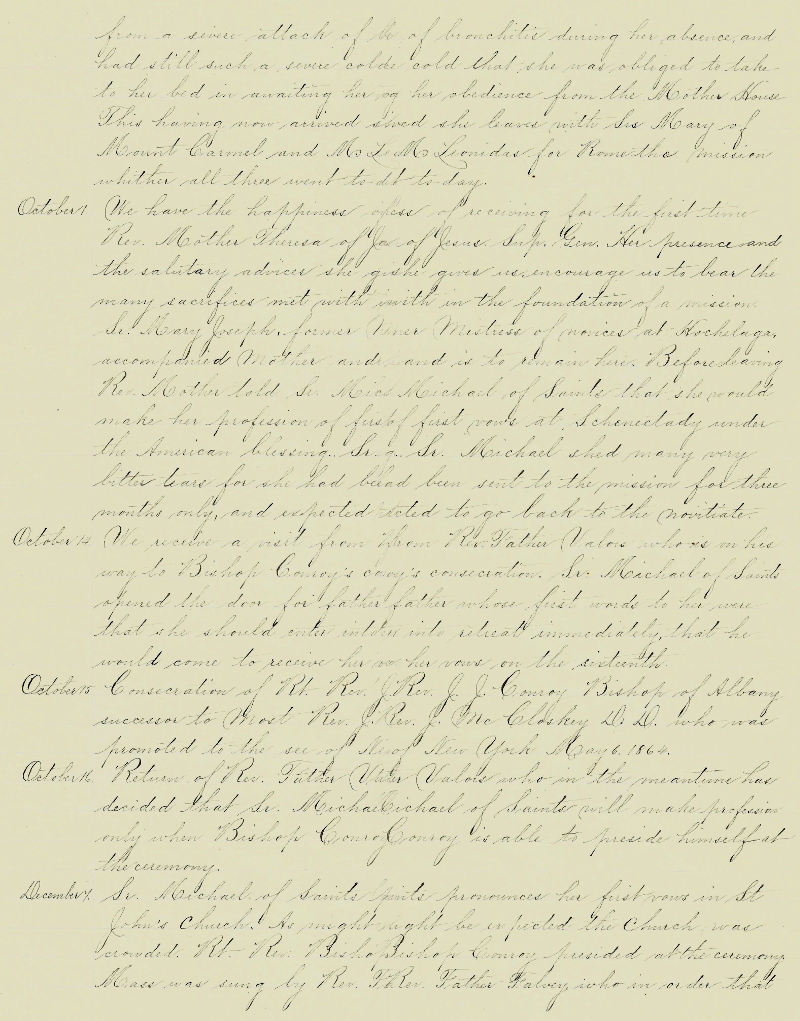 from a severe attack of b of bronchitis during her absence, and
had still such a severe colde cold that she was obliged to take
to her bed in awaiting her og her obedience from the Mother House
This having now arrived she leaves with Srs Mary of
Mount Carmel and M. L. M. Leonidas for Rome the mission
whither all three went to-dt to-day.
October 1 We have the happiness ofess of receiving for the first time
Rev. Mother Theresa of Je of Jesus Sup. Gen. Her presence and
the salutary advices she gishe gives us encourage us to bear the
many sacrifices met with iwith in the foundation of a mission.
Sr. Mary Joseph, former Mistress of novices at Hochelaga,
accompanied Mother and and is to remain here. Before leaving
Rev. Mother told Sr. Mics Michael of Saints that she would
make her profession of firstof first vows at Schenectady under
the American blessing. Sr. g. Sr. Michael shed many very
bitter tears for she had beead been sent to the mission for three
months only, and expected tcted to go back to the novitiate.
October 14 We receive a visit from from Rev. Father Valois who is on his
way to Bishop Conroy's coroy's consecration. Sr. Michael of Saints
opened the door for father father whose first words to her were
that she should enter into into retreat immediately, that he
would come to receive her vo her vows on the sixteenth.
October 15 Consecration of Rt. Rev. J. Rev. J. J. Conroy Bishop of Albany
successor to Most Rev. J. Rev. J. Mc Closkey D. D. who was
promoted to the see of Newof New York May 6, 1864.
October 16 Return of Rev. Father Valois who in the meantime has
decided that Sr. Michaelichael of Saints will make profession
only when Bishop ConroConroy is able to preside himself at
the ceremony.
December 7. Sr. Michael of Saints aints pronounces her first vows in St
John's Church. As might ight be expected the Church was
crowded. Rt. Rev. BishoBishop Conroy presided at the ceremony
Mass was sung by Rev. FRev. Father Falvey, who in order that